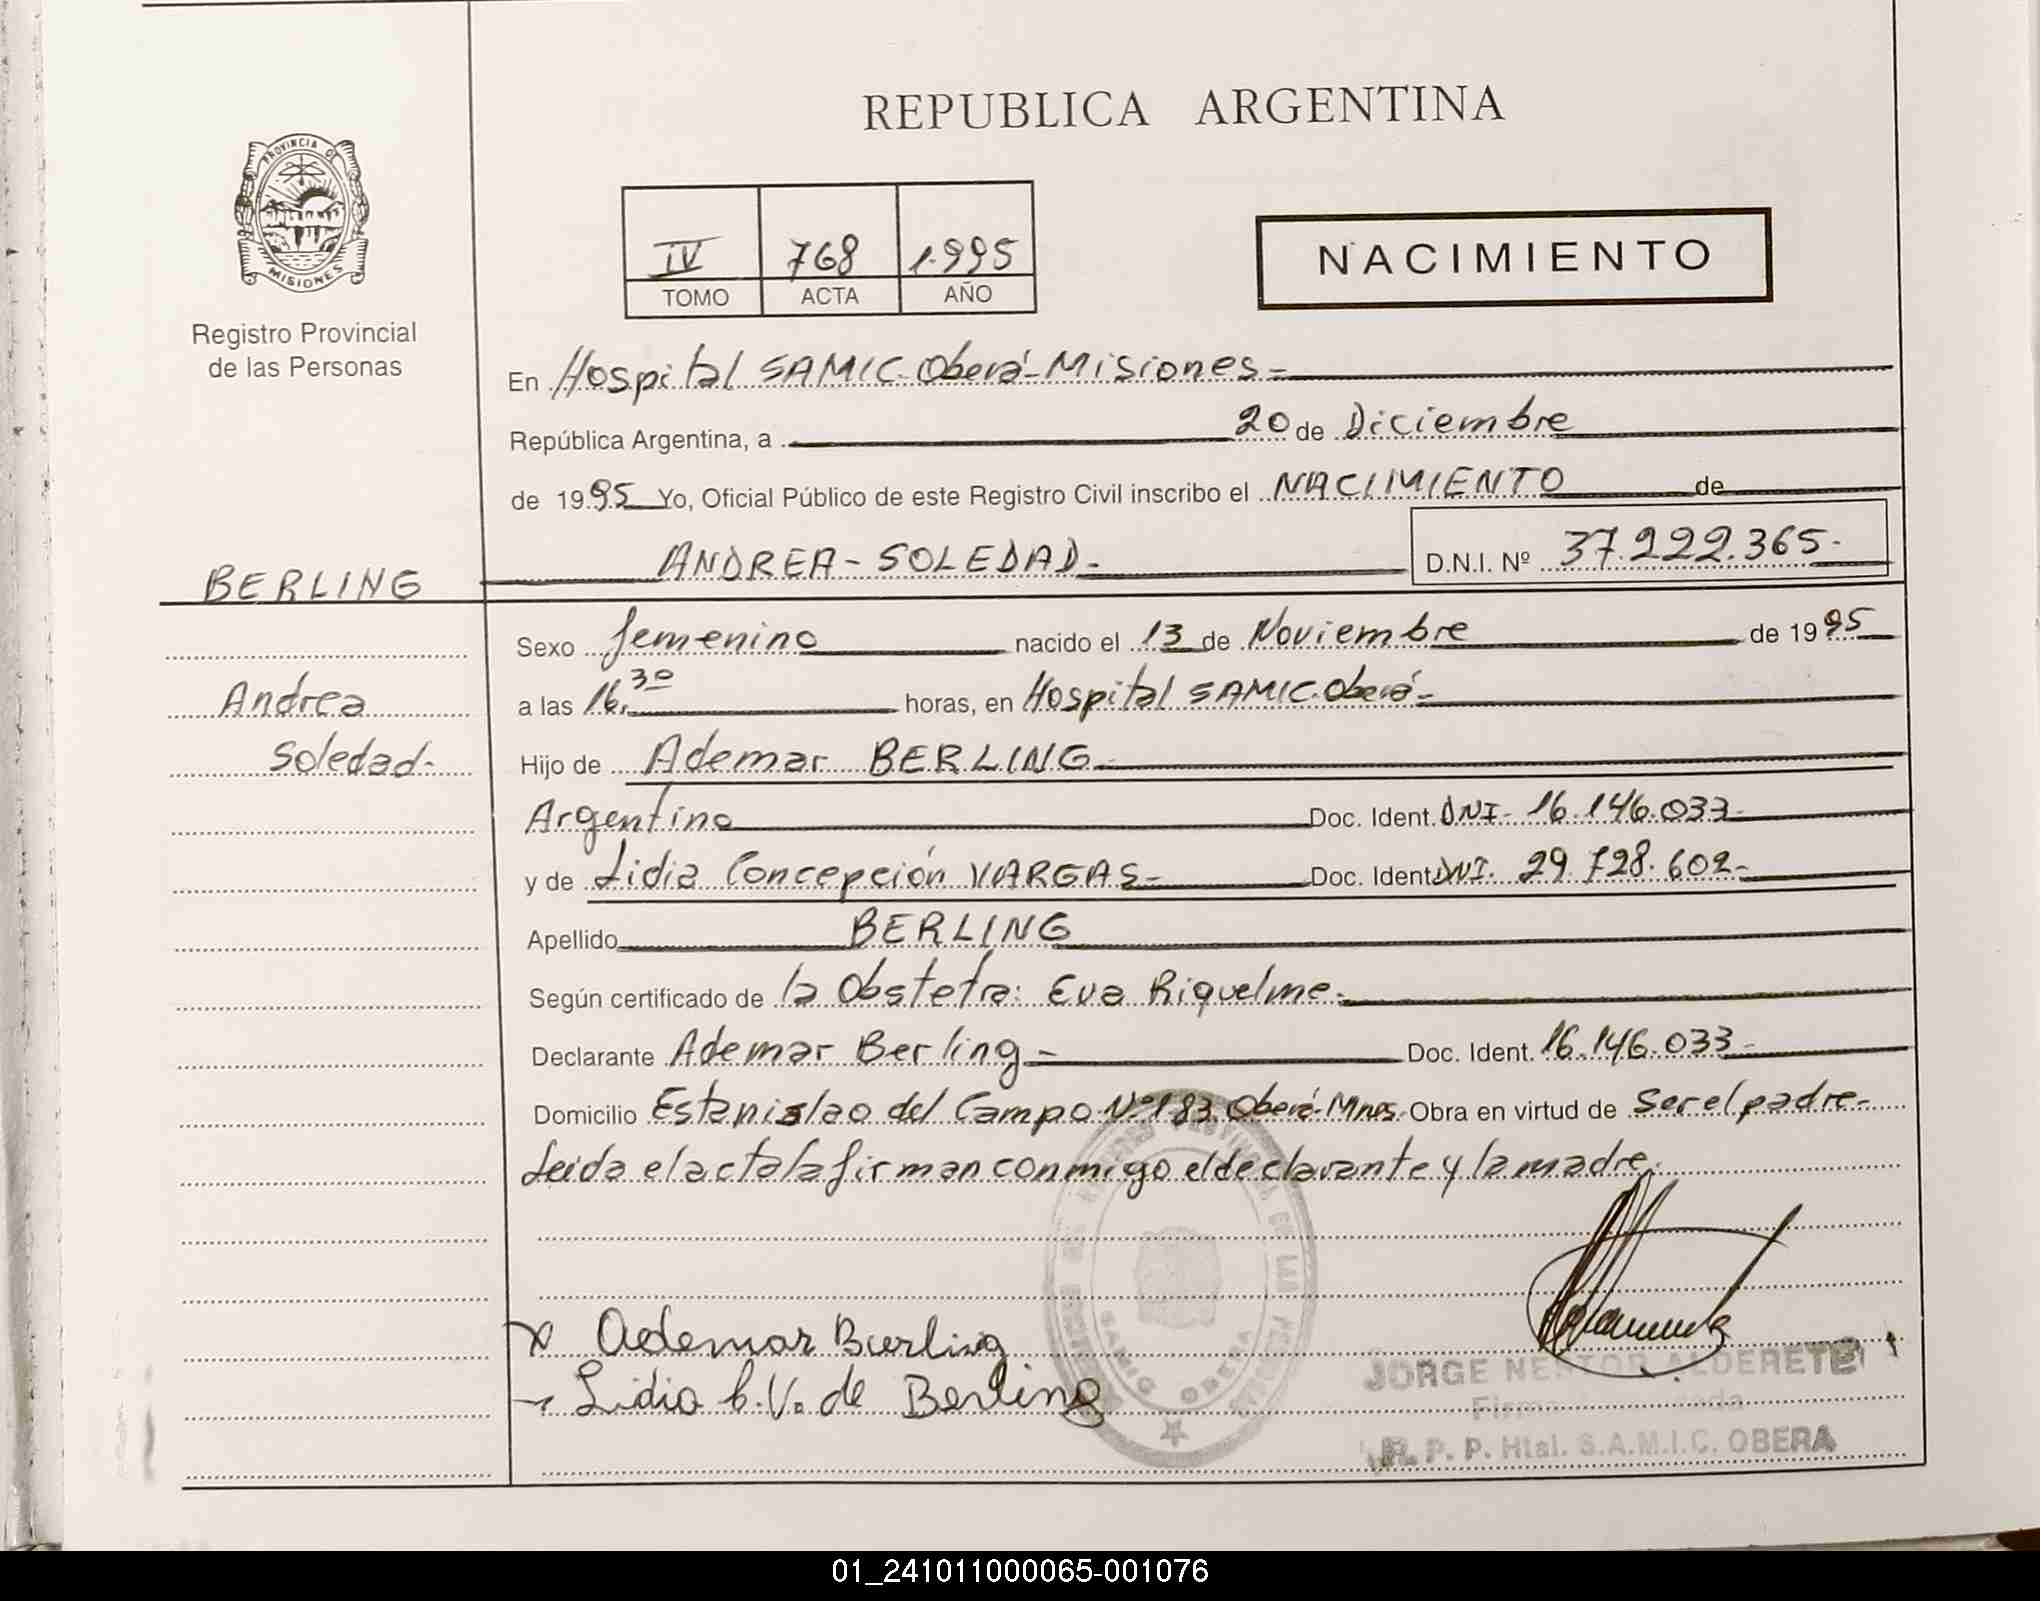 REPUBLICA ARGENTINA
PROVINCIA DE
MISIONES
Registro Provincial
de las Personas
IV 768 1.995
TOMO ACTA AÑO
NACIMIENTO
En Hospital SAMIC-Oberá-Misiones=
República Argentina, a 20 de Diciembre
de 1995 Yo, Oficial Público de este Registro Civil inscribo el NACIMIENTO de
BERLING ANDREA-SOLEDAD- D.N.I. Nº 37.222.365-
Sexo femenino nacido el 13 de Noviembre de 1995
Andrea a las 16.30 horas, en Hospital SAMIC-Oberá-
Soledad- Hijo de Ademar BERLING-
Argentino Doc. Ident. DNI- 16.146.033-
y de Lidia Concepción VARGAS- Doc. Ident DNI. 29.728.602-
Apellido BERLING
Según certificado de la Obstetra: Eva Riquelme-
Declarante Ademar Berling- Doc. Ident. 16.146.033-
Domicilio Estanislao del Campo Nº183 Oberá-Mnes. Obra en virtud de Ser el padre-
Leida el acta la firman conmigo el declarante y la madre.
x Ademar Berling
Lidia C.V. de Berling
SAMIC OBERA
JORGE NESTOR ALDERETE
R. P. P. Htal. S.A.M.I.C. OBERA
01_241011000065-001076